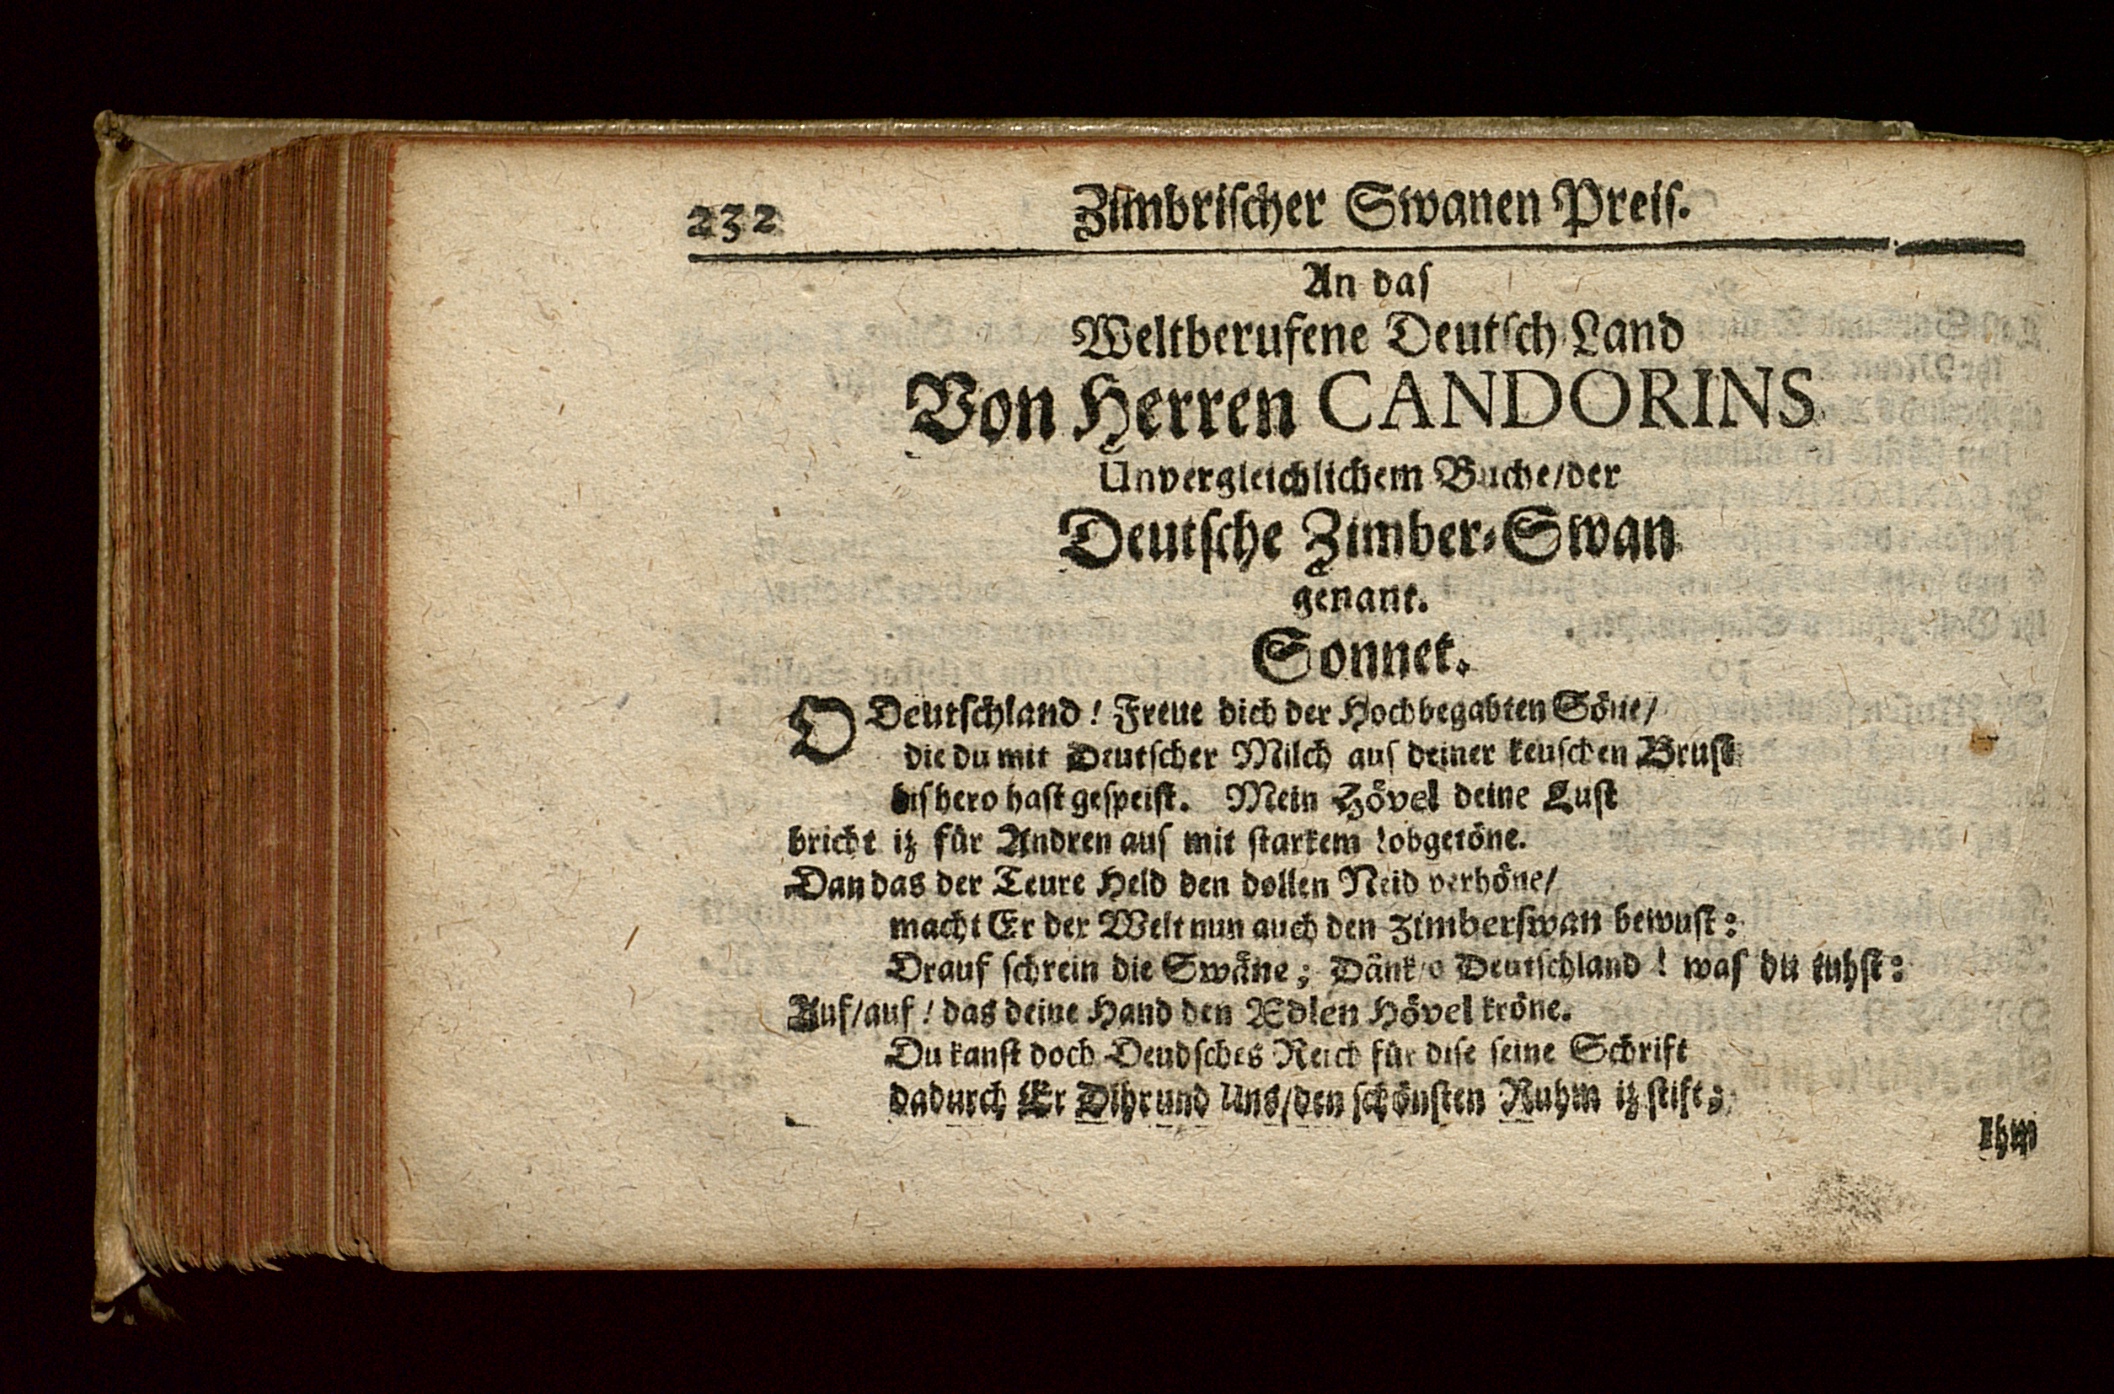 232 Zimbriſcher Swanen Preiſ.
An daſ
Weltberufene Deutſch Land
Von Herren CANDORINS
Unvergleichlichem Buche/der
Deutſche Zimber-Swan
genant.
Sonnet.
O Deutſchland! Freue dich der Hochbegabten Söne/
die du mit Deutſcher Milch auſ deiner keuſchen Bruſt
biſhero haſt geſpeiſt. Mein Hövel deine Luſt
bricht iz für Andren auſ mit ſtarkem lobgetöne.
Dan das der Teure Held den dollen Neid verhöne/
macht Er der Welt nun auch den Zimberſwan bewuſt:
Drauf ſchrein die Swäne; Dänk/o Deutſchland! waſ du tuhſt:
Auf/auf! das deine Hand den Ædlen Hövel kröne.
Du kanſt doch Deudſches Reich für diſe ſeine Schrift
dadurch Er Dihr und Uns/den ſchönſten Ruhm iz ſtift;
Ihm